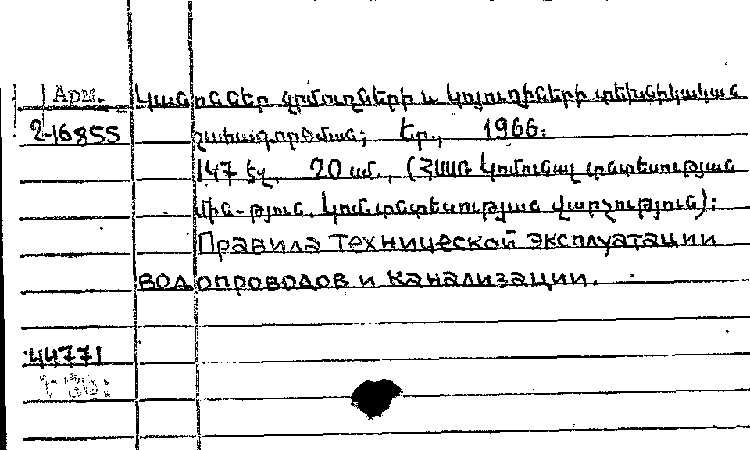 Арм. Կանոններ ջրմուղների և կոյուղիների տեխնիկական
2-16855 շահագործման; Եր., 1966.
147 էջ. 20 սմ., (ՀՍՍՌ Կոմունալ տնտեսության
մին-թյուն. Կոմ. տնտեսության վարչություն):
Правила технической эксплуатации
водопроводов и канализации.
44771